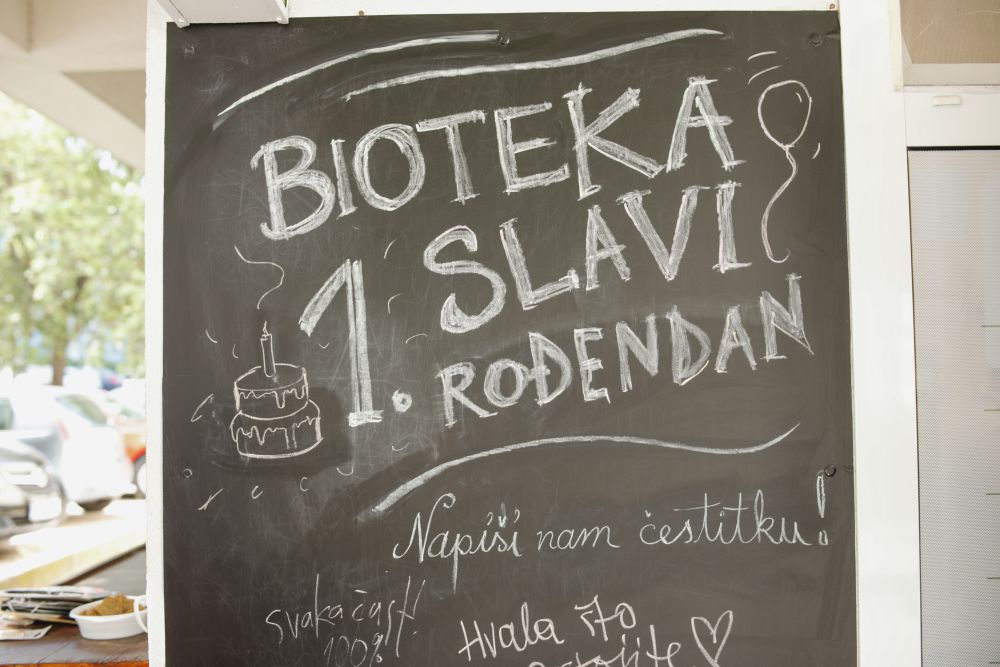 BIOTEKA
SLAVI
1. ROĐENDAN
Napiši nam čestitku!
svaka čast!
100%!
Hvala što
postojite